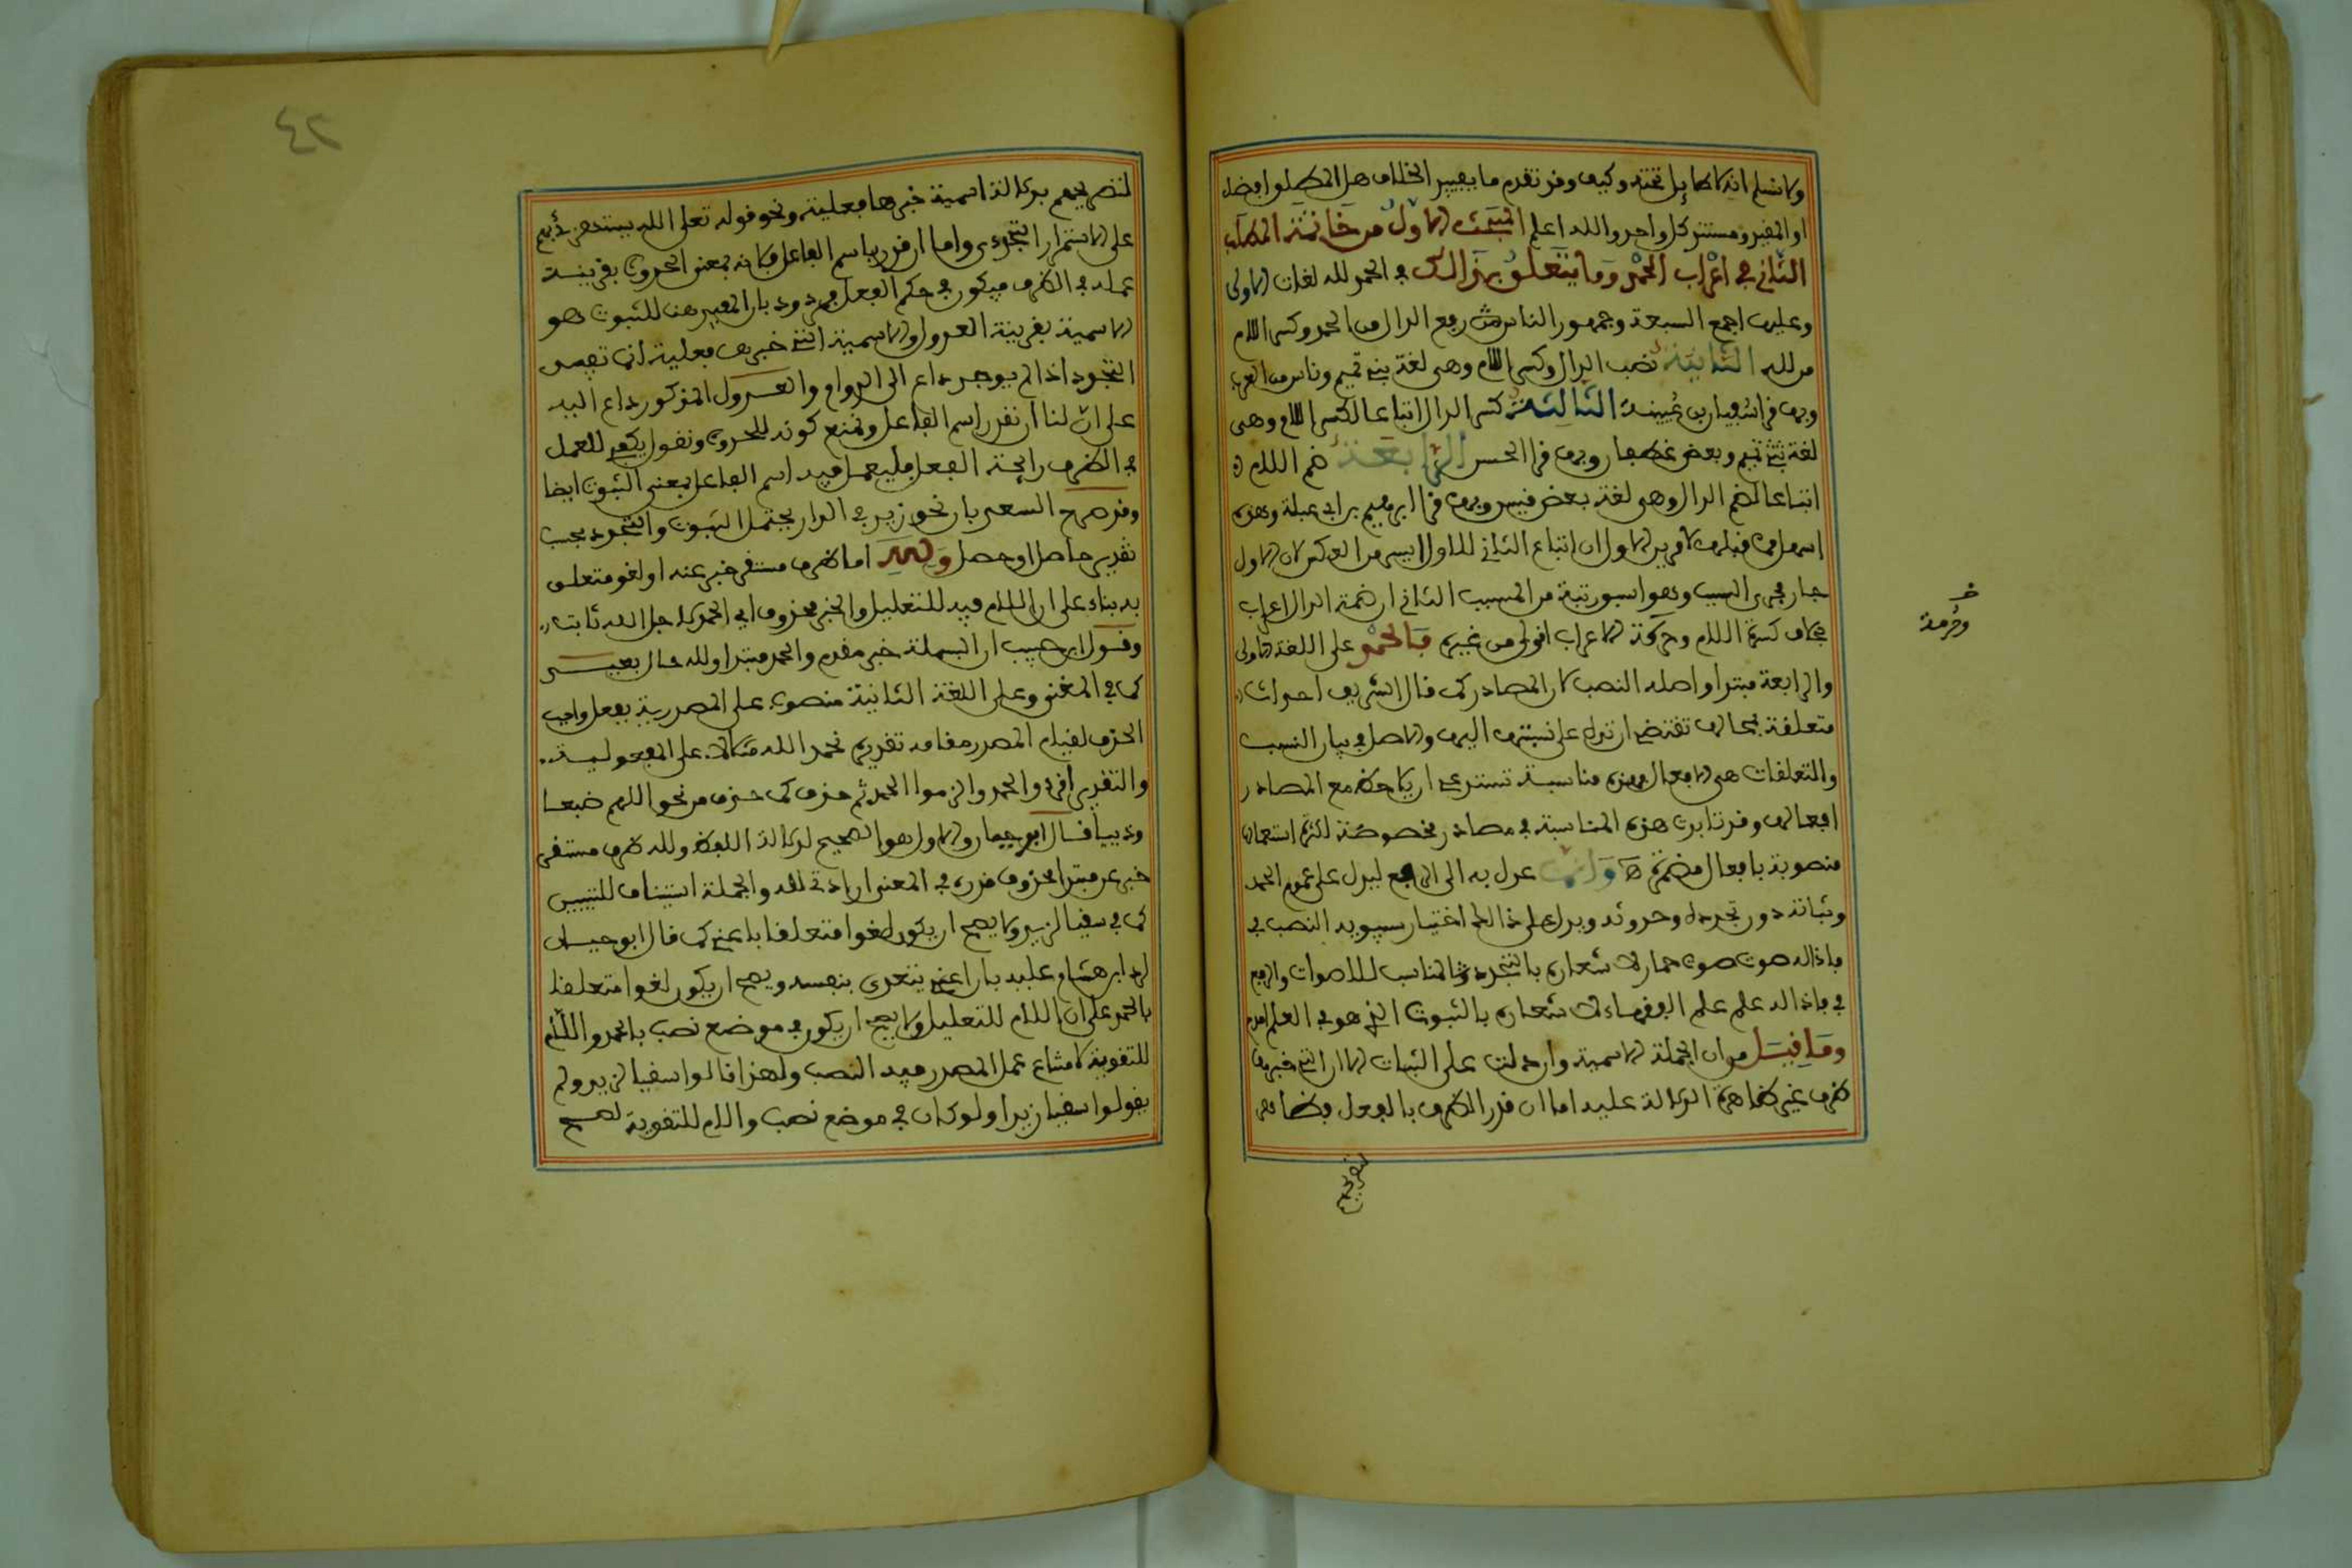 ولا نسلم انه لا طايل تحته وكيف وقد تقدم ما يفيد الخلاف هل المطلق افضل
او المقيد ومستند كل واحد والله اعلم المبحث الاول من خاتمة المطلب
الثاني في اعراب الحمد وما يتعلق بهذا الك في الحمد لله لغات الاولى
وعليها اجمع السبعة وجمهور الناس رفع الدال من الحمد وكسر اللام
من لله الثانية نصب الدال وكسر اللام وهي لغة بني تميم وناس من العرب
وبها قرا سفيان بن عيينة الثالثة كسر الدال اتباعا لكسر اللام وهي
لغة بني تميم وبعض غطفان وبها قرا الحسن الرابعة ضم اللام
اتباعا لضم الدال وهي لغة بعض قيس وبها قرا ابراهيم بن ابي عبلة وهذه
اسهل مما قبلها لامرين الاول ان اتباع الثاني للاول ايسر من العكس لان الاول
جار مجرى السبب وهو اسبق رتبة من المسبب الثاني ان ضمة الدال اعراب
بخلاف كسرة اللام وحركة الاعراب اقوى من غيرها فالحمد على اللغة الاولى
والرابعة مبتدا واصله النصب لان المصادر كما قال الشريف احداث
متعلقة بمحالها تقتضي ان تدل على نسبتها اليها والاصل في بيان النسب
والتعلقات هي الافعال فهذه مناسبة تستدعي ان يلاحظ مع المصادر
افعالها وقد تابدت هذه المناسبة في مصادر مخصوصة لكثرة استعمالها
منصوبة بافعال مضمرة وانما عدل به الى الرفع ليدل على عموم الحمد
وثباته دون تجدده وحدوثه ويدل على ذالك اختيار سيبويه النصب في
فاذا له صوت صوت حمار لاشعاره بالتجدد المناسب للاصوات والرفع
في فاذا له علم علم الفقهاء لاشعاره بالثبوت الذي هو في العلم امدح
وما قيل من ان الجملة الاسمية وان دلت على الثبات الا ان التي خبرها
ظرف غير ظاهرة الدلالة عليه اما ان قدر الظرف بالفعل فظاهر
لتصريحهم
خـ
وحرمة
٤٢
لتصريحهم بدلالة اسمية خبرها فعلية ونحو قوله تعلى الله يستهزئ بهم
على الاستمرار التجددي واما ان قدر باسم الفاعل فلانه بمعنى الحدوث بقرينة
عمله في الظرف فيكون في حكم الفعل مردود بان المفيد هنا للثبوت هو
الاسمية بقرينة العدول والاسمية التي خبرها فعلية انما تفيد
التجدد اذا لم يوجد داع الى الدوام والعدول المذكور داع اليه
على ان لنا ان نقدر اسم الفاعل ونمنع كونه للحدوث ونقول يكفي للعمل
في الظرف رايحة الفعل فليعمل فيه اسم الفاعل بمعنى الثبوت ايضا
وقد صرح السعد بان نحو زيد في الدار يحتمل الثبوت والتجدد بحسب
تقدير حاصل او حصل ولله اما ظرف مستقر خبر عنه او لغو متعلق
به بناء على ان اللام فيه للتعليل والخبر محذوف اي الحمد لاجل الله ثابت
وقول ابن حبيب ان البسملة خبر مقدم والحمد مبتدا ولله حال بعيد
كما في المغني وعلى اللغة الثانية منصوب على المصدرية بفعل واجب
الحذف لقيام المصدر مقامه تقديره نحمد الله على المفعولية
والتقدير اقرءوا الحمد والزموا الحمد ثم حذف كما حذف من نحو اللهم ضبعا
وذئبا قال ابو حيان والاول هو الصحيح لدلالة اللفظ ولله ظرف مستقر
خبر عن مبتدا محذوف قدره في المعنى ارادتي لله والجملة استيناف للتبيين
كما في سقيا لزيد ولا يصح ان يكون لغوا متعلقا باعني كما قال ابو حيان
لرد ابن هشام عليه بان اعني يتعدى بنفسه ويصح ان يكون لغوا متعلقا
بالحمد على ان اللام للتعليل ولا يصح ان يكون في موضع نصب بالحمد واللام
للتقوية لامتناع عمل المصدر فيه النصب ولهذا قالوا سقيا لزيد ولم
يقولوا سقيا زيدا ولو كان في موضع نصب واللام للتقوية لصح